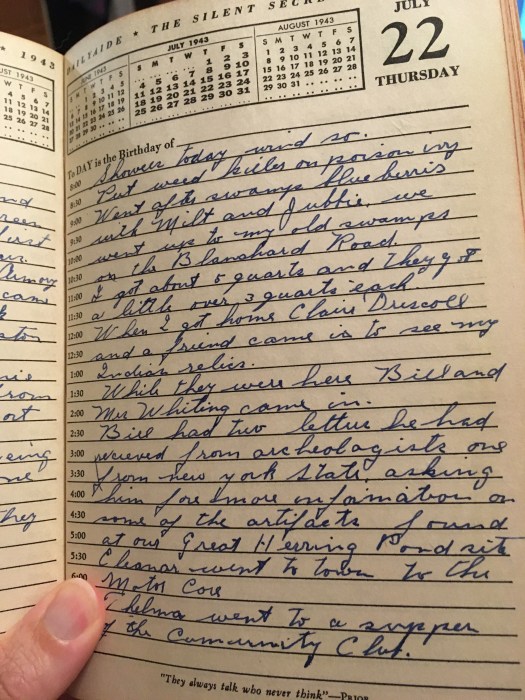 1943
UST 1943
W T F S
4 5 6 7
11 12 13 14
18 19 20 21
25 26 27 28
DAILYAIDE ★ THE SILENT SECRE
JUNE 1943
JULY 1943
S M T W T F S
1 2 3
4 5 6 7 8 9 10
11 12 13 14 15 16 17
18 19 20 21 22 23 24
25 26 27 28 29 30 31
AUGUST 1943
S M T W T F S
1 2 3 4 5 6 7
8 9 10 11 12 13 14
15 16 17 18 19 20 21
22 23 24 25 26 27 28
29 30 31
JULY
22
THURSDAY
To DAY is the Birthday of
8:00 Showers today wind so.
Put weed killer on poison ivy
9:00 Went after swamps blueberris
9:30 with Milt and Jubbie, we
10:00 went up to my old swamps
10:30 on the Blanchard Road.
11:00 I got about 5 quarts and they got
11:30 a little over 3 quarts each
12:00 When I got home Claire Driscoll
12:30 and a friend came in to see my
1:00 Indian relics.
1:30 While they were here Bill and
2:00 Mrs Whiting came in.
2:30 Bill had two letters he had
3:00 recieved from archeologists one
3:30 from new york State asking
4:00 him for more information on
4:30 some of the artifacts found
5:00 at our Great Herring Pond site
5:30 Eleanor went to town to the
6:00 Motor Core
Thelma went to a supper
the Community Club.
"They always talk who never think"—PRIOR